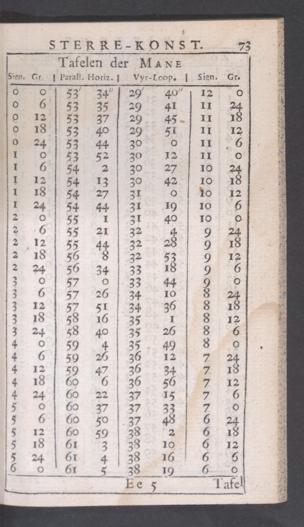 STERRE-KONST. 73
Tafelen der MANE
Sien. Gr. | Parall. Horiz. | Vyr-Loop. | Sien. Gr.
0 0 53′ 34″ 29′ 40″ 12 0
0 6 53 35 29 41 11 24
0 12 53 37 29 45 11 18
0 18 53 40 29 51 11 12
0 24 53 44 30 0 11 6
1 0 53 52 30 12 11 0
1 6 54 2 30 27 10 24
1 12 54 13 30 42 10 18
1 18 54 27 31 0 10 12
1 24 54 44 31 19 10 6
2 0 55 1 31 40 10 0
2 6 55 21 32 4 9 24
2 12 55 44 32 28 9 18
2 18 56 8 32 53 9 12
2 24 56 34 33 18 9 6
3 0 57 0 33 44 9 0
3 6 57 26 34 10 8 24
3 12 57 51 34 36 8 18
3 18 58 16 35 1 8 12
3 24 58 40 35 26 8 6
4 0 59 4 35 49 8 0
4 6 59 26 36 12 7 24
4 12 59 47 36 34 7 18
4 18 60 6 36 56 7 12
4 24 60 22 37 15 7 6
5 0 60 37 37 33 7 0
5 6 60 50 37 48 6 24
5 12 60 59 38 2 6 18
5 18 61 3 38 10 6 12
5 24 61 4 38 16 6 6
6 0 61 5 38 19 6 0
Ee 5 Tafel